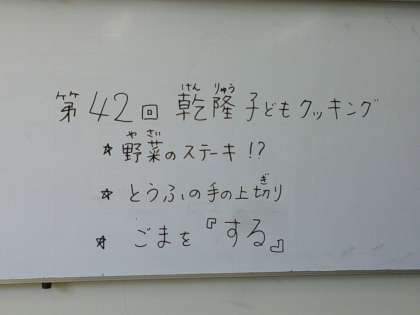 第42回 乾隆子どもクッキング
けん りゅう
☆ 野菜のステーキ!?
や さい
☆ とうふの手の上切り
ぎ
☆ ごまを『する』